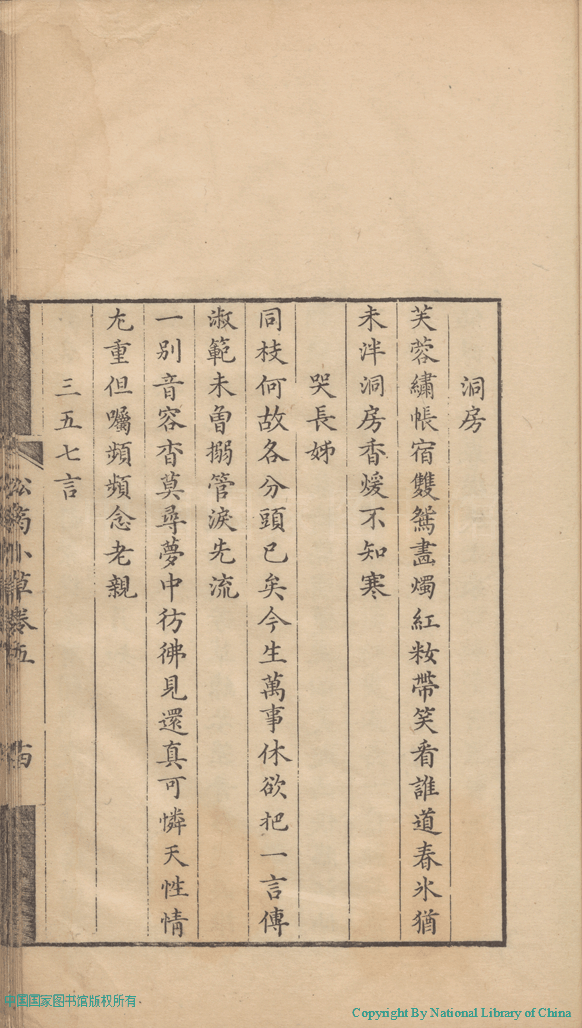 洞房
芙蓉繡帳宿雙鴛畫燭紅妝帶笑看誰道春氷猶
未泮洞房香煖不知寒
哭長姊
同枝何故各分頭已矣今生萬事休欲把一言傳
淑範未曾搦管淚先流
一別音容杳莫尋夢中彷彿見還真可憐天性情
尤重但囑頻頻念老親
三五七言
小草卷五
中国国家图书馆版权所有。
Copyright By National Library of China